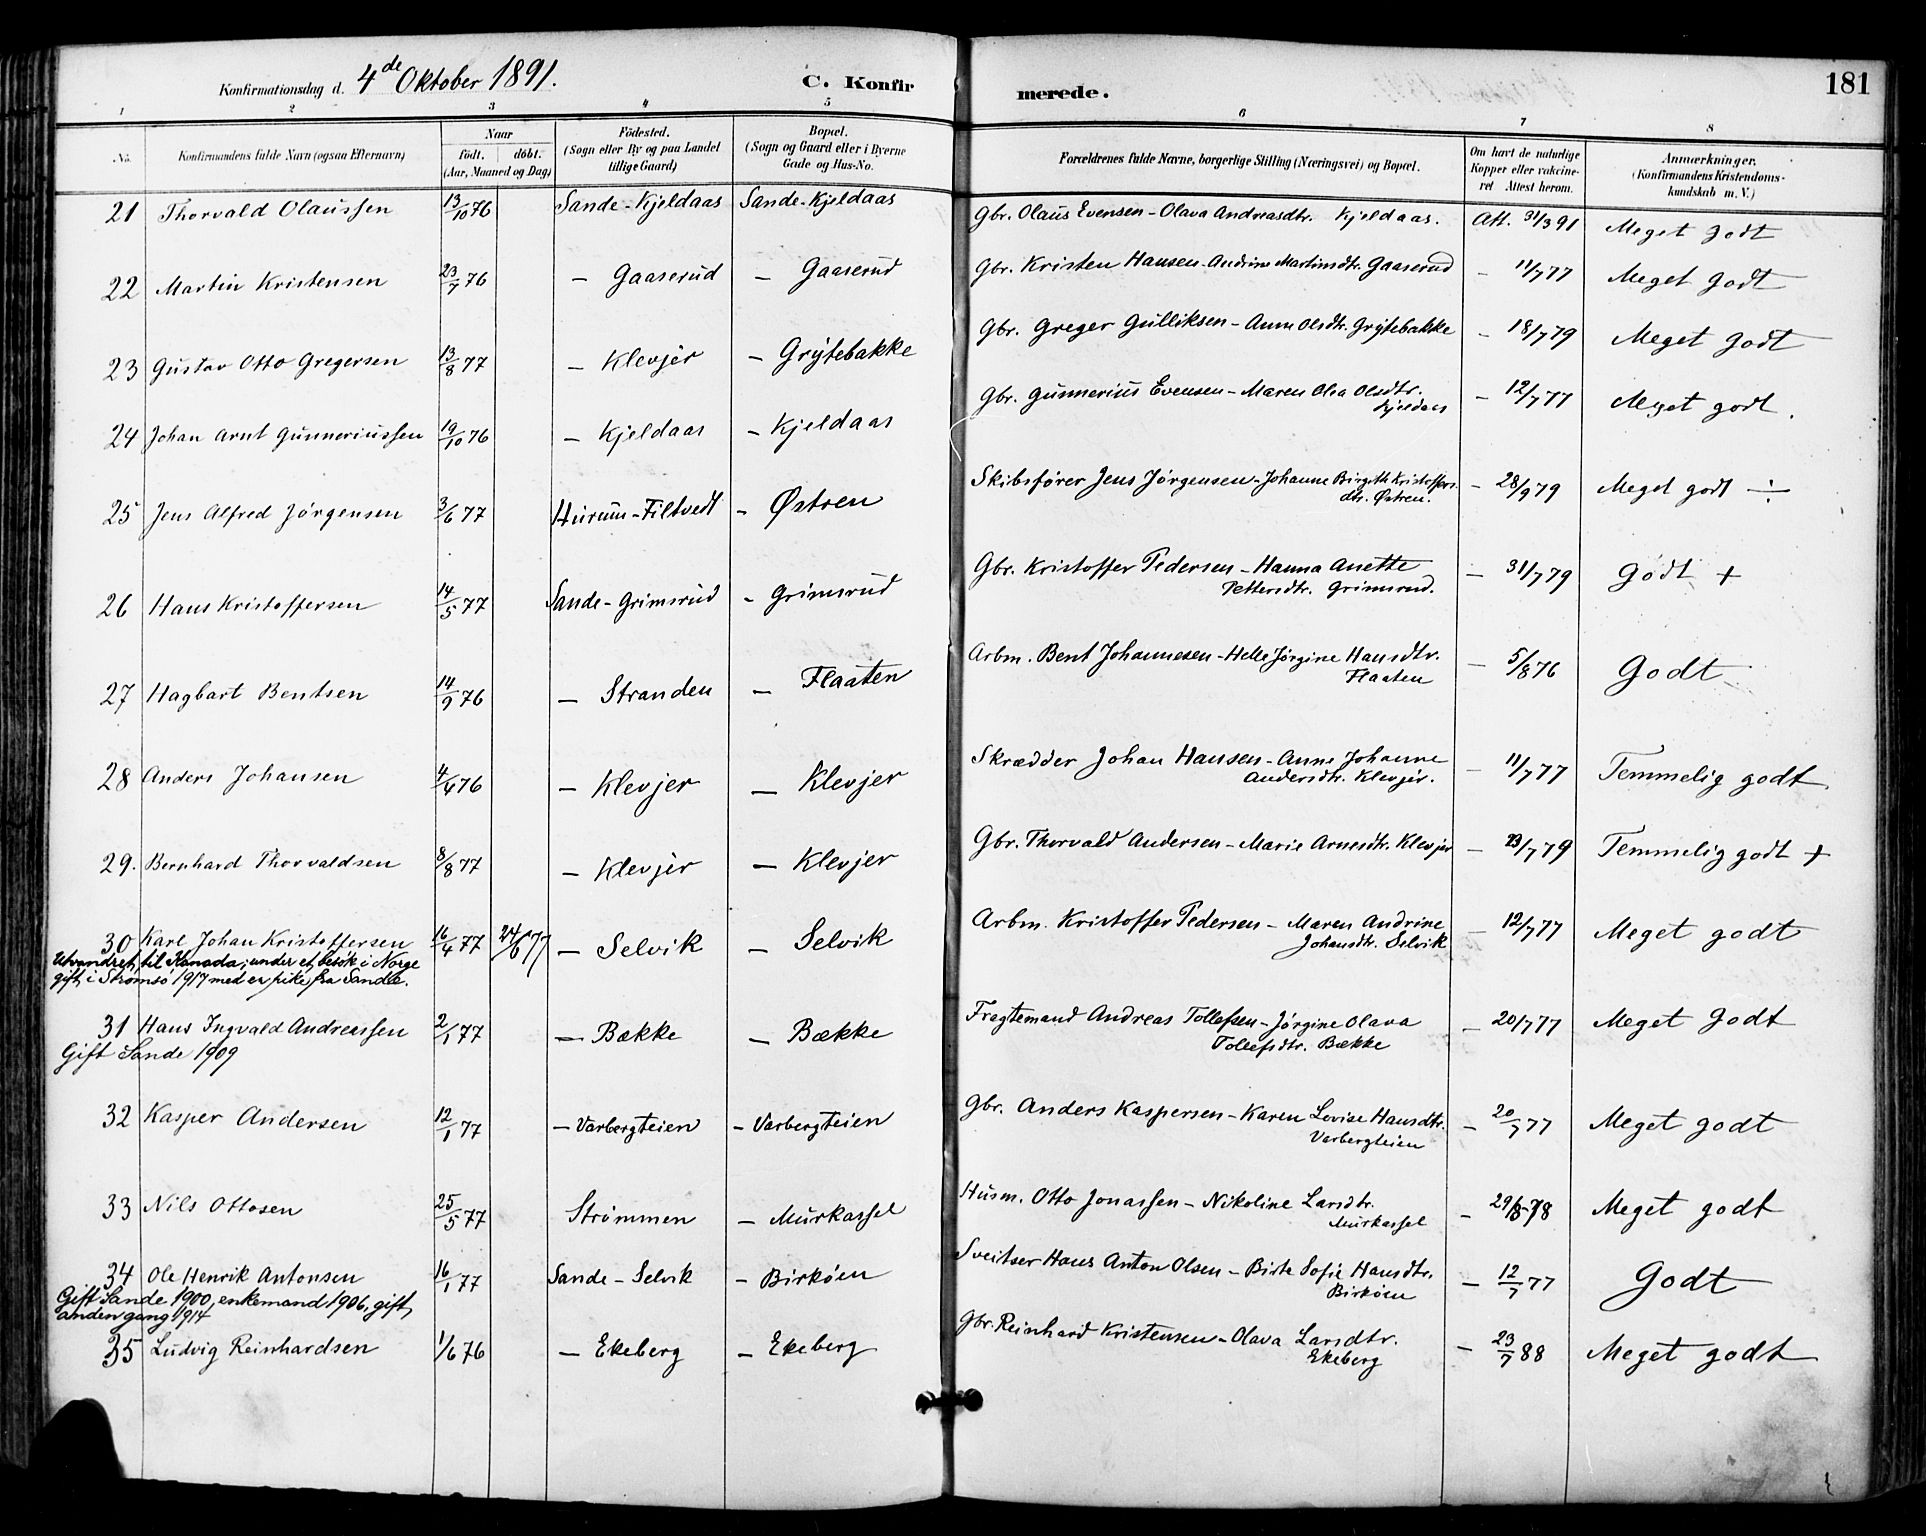 Konfirmationsdag d. 4de Oktober 1891. C. Konfirmerede. 181
1 2 3 4 5 6 7 8
No. Konfirmandens fulde Navn (ogsaa Efternavn) Naar födt. döbt. (Aar, Maaned og Dag) Födested. (Sogn eller By og paa Landet tillige Gaard) Bopæl. (Sogn og Gaard eller i Byerne Gade og Hus-No. Forældrenes fulde Navne, borgerlige Stilling (Næringsvei) og Bopæl. Om havt de naturlige Kopper eller vakcineret Attest herom. Anmærkninger. (Konfirmandens Kristendomskundskab m. V.)
21 Thorvald Olaussen 13/10 76 Sande-Kjeldaas Sande-Kjeldaas Gbr. Olaus Evensen - Olava Andreasdtr. Kjeldaas. Att. 31/3 91 Meget godt
22 Martin Kristensen 23/7 76 — Gaaserud — Gaaserud Gbr. Kristen Hansen - Andrine Martinsdtr. Gaaserud - 11/7 77 Meget godt
23 Gustav Otto Gregersen 13/8 77 — Klevjer — Grytebakke Gbr. Greger Gulliksen - Anne Olsdtr. Grytebakke - 18/7 79 Meget godt
24 Johan Arnt Gunneriussen 19/10 76 — Kjeldaas — Kjeldaas Gbr. Gunnerius Evensen - Maren Olea Olsdtr. - 12/7 77 Meget godt.
Kjeldaas
25 Jens Alfred Jörgensen 3/6 77 Hurum-Filtvedt - Østren Skibsfører Jens Jörgensen - Johanne Birgith Kristoffers - 28/9 79 Meget godt ÷
dtr. Østren.
26 Hans Kristoffersen 14/5 77 Sande-Grimsrud - Grimsrud Gbr. Kristoffer Pedersen - Hanna Anette - 31/7 79 Godt +
Pettersdtr. Grimsrud.
27 Hagbart Bentsen 14/9 76 — Stranden — Flaaten Arbm. Bent Johannesen - Helle Jörgine Hansdtr. - 5/8 76 Godt
Flaaten
28 Anders Johansen 4/4 76 — Klevjer — Klevjer Skrædder Johan Hansen - Anne Johanne - 11/7 77 Temmelig godt
Andersdtr. Klevjer.
29. Bernhard Thorvaldsen 8/8 77 — Klevjer — Klevjer Gbr. Thorvald Andersen - Marie Arnesdtr. Klevjer - 23/7 79 Temmelig godt +
30 Karl Johan Kristoffersen 16/4 77 24/6 77 — Selvik — Selvik Arbm. Kristoffer Pedersen - Maren Andrine - 12/7 77 Meget godt
Johansdtr. Selvik
Utvandret til Kanada; under et besök i Norge
gift i Strömsö 1917 med en pike fra Sande.
31 Hans Ingvald Andreassen 2/1 77 — Bække — Bække Fragtemand Andreas Tollefsen - Jörgine Olava - 20/7 77 Meget godt
Tollefsdtr. Bække
Gift Sande 1909
32 Kasper Andersen 12/1 77 — Varbergteien - Varbergteien Gbr. Anders Kaspersen - Karen Lovise Hansdtr. - 20/7 77 Meget godt
Varbergteien
33 Nils Ottosen 25/5 77 Strømmen — Murkassel Husm. Otto Jonassen - Nikoline Larsdtr. - 29/8 78 Meget godt
Murkassel
34 Ole Henrik Antonsen 16/1 77 Sande-Selvik - Birköen Sveitser Hans Anton Olsen - Birte Sofie Hansdtr. - 12/7 77 Godt
Birköen
Gift Sande 1900, enkemand 1906, gift
anden gang 1914
35 Ludvig Reinhardsen 1/6 76 — Ekeberg — Ekeberg Gbr. Reinhard Kristensen - Olava Larsdtr. - 23/7 88 Meget godt
Ekeberg